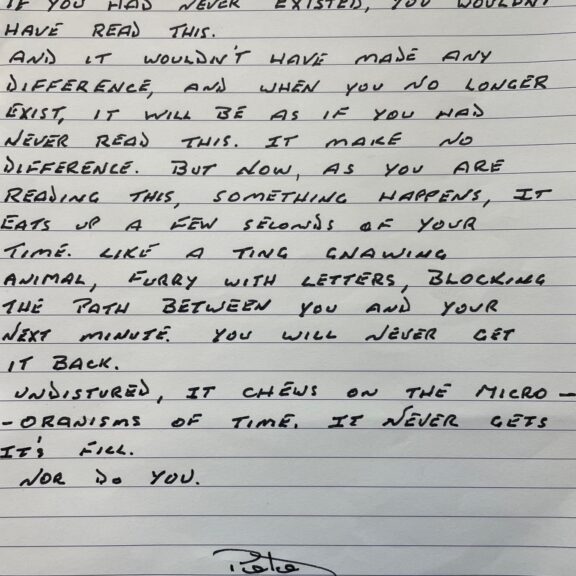 IF YOU HAD NEVER EXISTED, YOU WOULDN'T
HAVE READ THIS.
AND IT WOULDN'T HAVE MADE ANY
DIFFERENCE, AND WHEN YOU NO LONGER
EXIST, IT WILL BE AS IF YOU HAD
NEVER READ THIS. IT MAKE NO
DIFFERENCE. BUT NOW, AS YOU ARE
READING THIS, SOMETHING HAPPENS, IT
EATS UP A FEW SECONDS OF YOUR
TIME. LIKE A TING GNAWING
ANIMAL, FURRY WITH LETTERS, BLOCKING
THE PATH BETWEEN YOU AND YOUR
NEXT MINUTE. YOU WILL NEVER GET
IT BACK.
UNDISTURED, IT CHEWS ON THE MICRO-
-ORANISMS OF TIME. IT NEVER GETS
IT'S FILL.
NOR DO YOU.